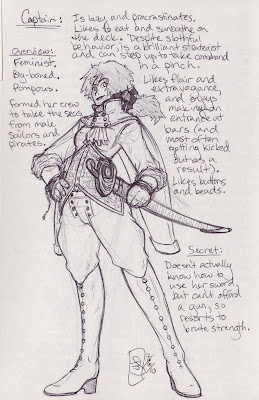 Captain: Is lazy and procrastinates.
Likes to eat and sunbathe on
the deck. Despite slothful
behavior, is a brilliant strategist
and can step up to take command
in a pinch.
Overview:
Feminist.
Big-boned.
Pompous.
Formed her crew
to take the seas
from male
sailors and
pirates.
Likes flair and
extravagance,
and enjoys
making an
entrance at
bars (and
most often
getting kicked
out as a
result).
Likes buttons
and beads.
Secret:
Doesn't actually
know how to
use her sword,
but can't afford
a gun, so
resorts to
brute strength.